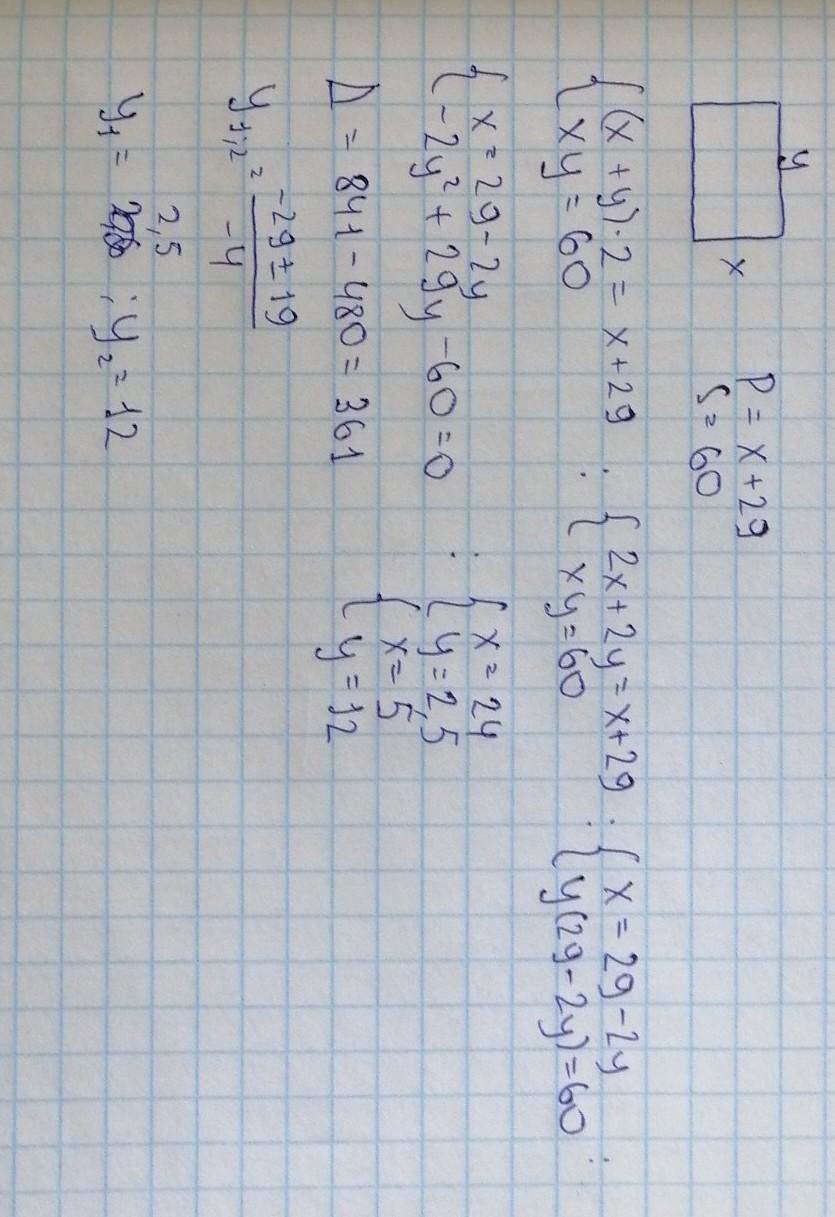 y
x
P = x + 29
S = 60
{ (x + y) · 2 = x + 29 ; { 2x + 2y = x + 29 ; { x = 29 - 2y
{ xy = 60 { xy = 60 { y(29 - 2y) = 60 ;
{ x = 29 - 2y ; { x = 24
{ -2y² + 29y - 60 = 0 { y = 2,5
{ x = 5
{ y = 12
Δ = 841 - 480 = 361
y₁,₂ = (-29 ± 19) / -4
y₁ = 2,5 ; y₂ = 12